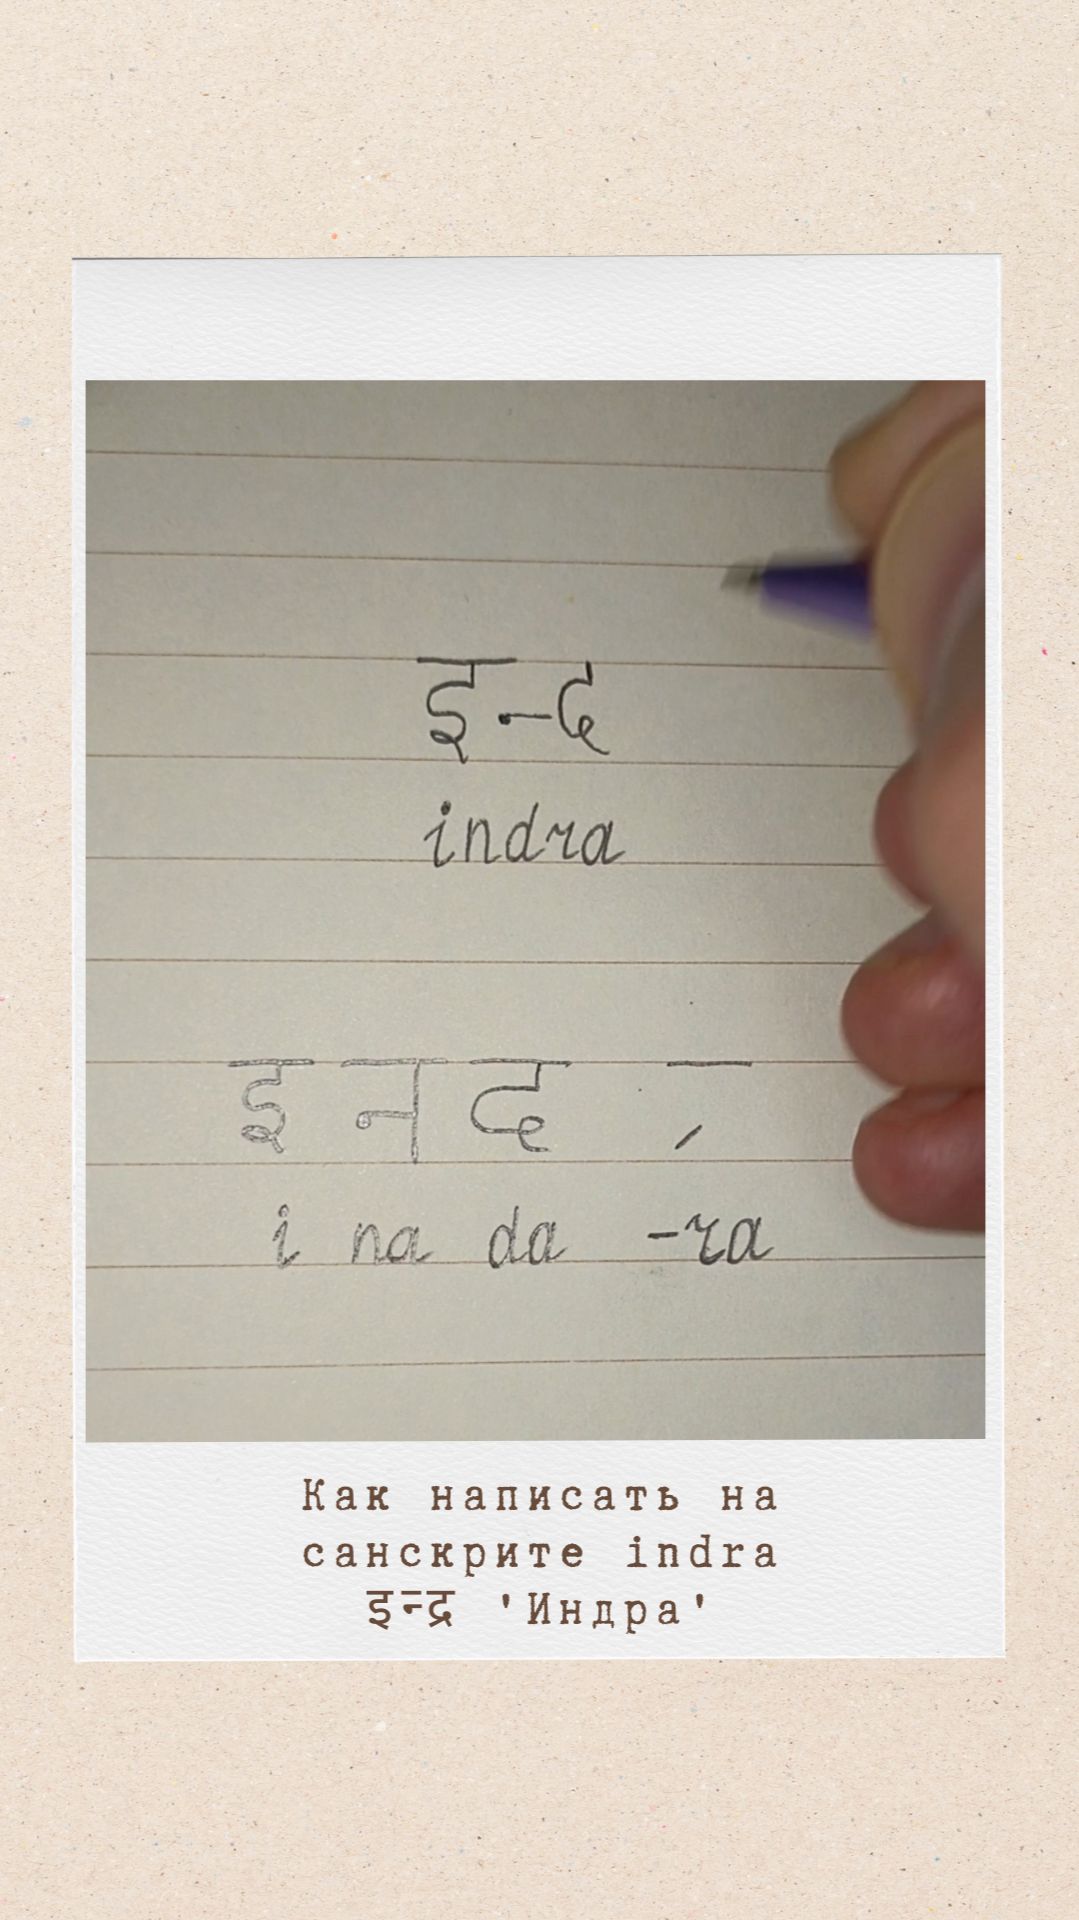 इन्द
indra
इ न द ्र
i na da -ra
Как написать на
санскрите indra
इन्द्र 'Индра'